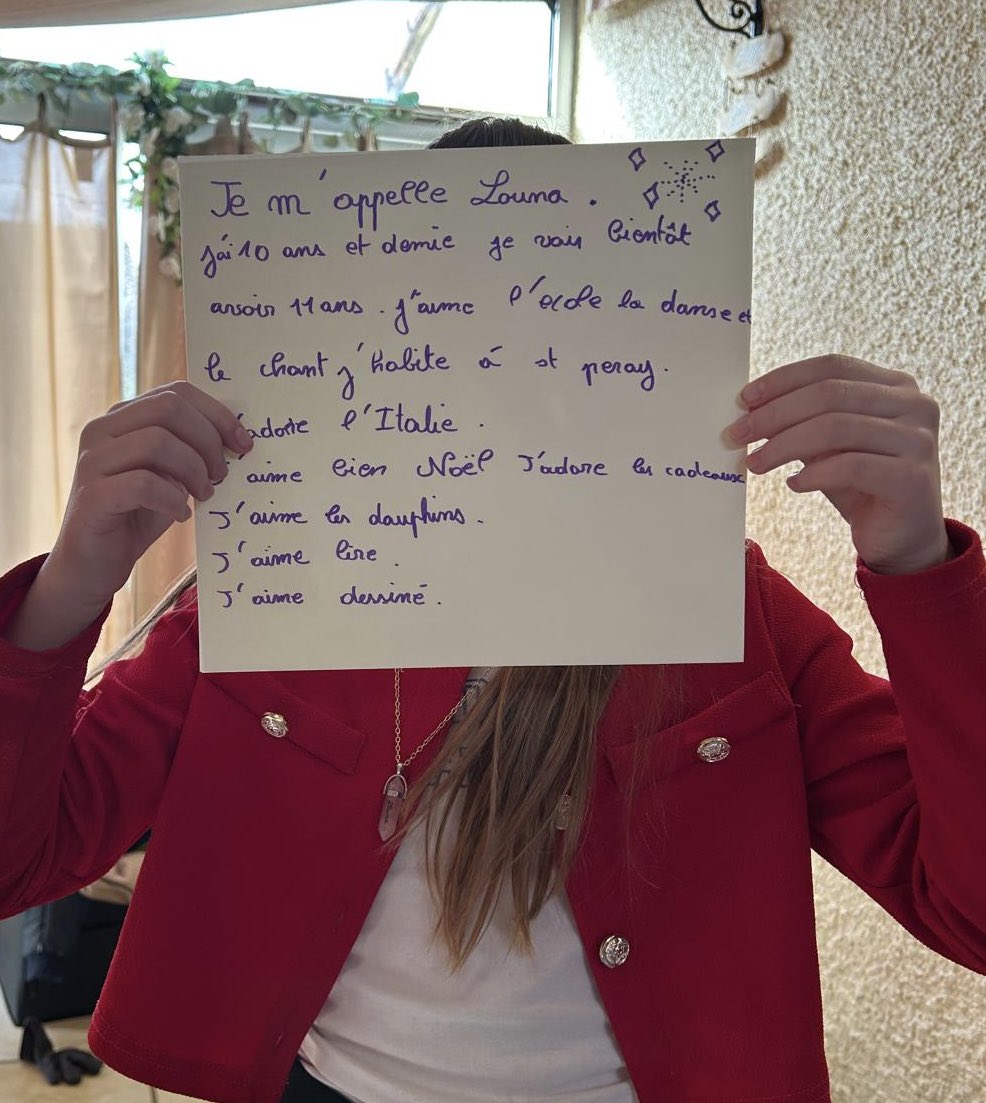 Je m'appelle Louna.
j'ai 10 ans et demie je vais bientôt
avoir 11 ans. j'aime l'école la danse et
le chant j'habite à st peray.
j'adore l'Italie.
j'aime bien Noël J'adore les cadeaux
J'aime les dauphins.
J'aime lire.
J'aime dessiné.